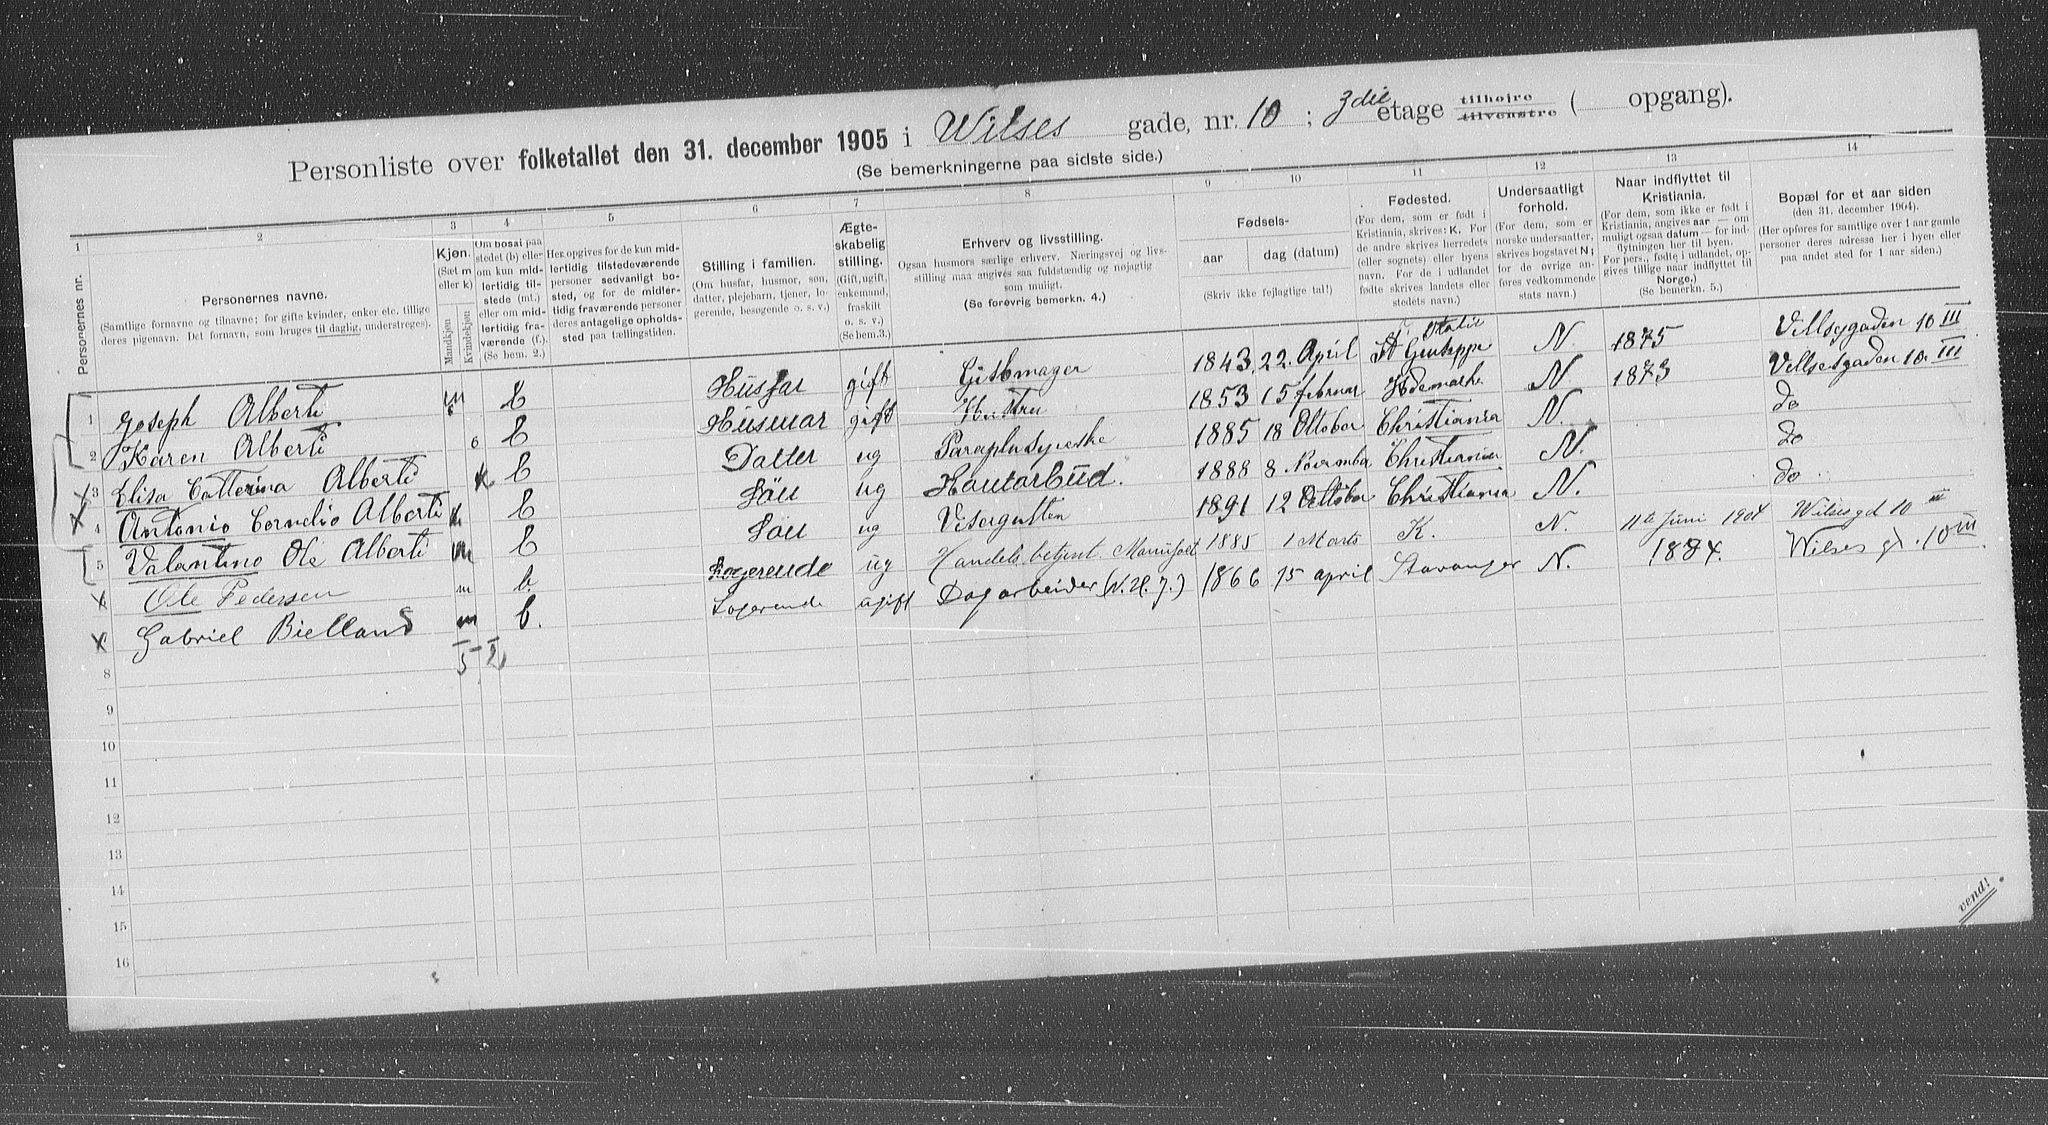 Personliste over folketallet den 31. december 1905 i Wilses gade, nr. 10 ; 3die etage tilhøjre tilvenstre ( opgang).
(Se bemerkningerne paa sidste side.)
1 2 3 4 5 6 7 8 9 10 11 12 13 14
Personernes nr.
Personernes navne.
(Samtlige fornavne og tilnavne; for gifte kvinder, enker etc. tillige
deres pigenavn. Det fornavn, som bruges til daglig, understreges).
Kjøn.
(Sæt m
eller k)
Mandkjøn
Kvindekjøn
Om bosat paa
stedet (b) eller
om kun mid-
lertidig til-
stede (mt.)
eller om mid-
lertidig fra-
værende (f.).
(Se bem. 2.)
Her opgives for de kun mid-
lertidig tilstedeværende
personer sedvanligt bo-
sted, og for de midler-
tidig fraværende personer
deres antagelige opholds-
sted paa tællingstiden.
Stilling i familien.
(Om husfar, husmor, søn,
datter, plejebarn, tjener, lo-
gerende, besøgende o. s. v.)
Ægte-
skabelig
stilling.
(Gift, ugift,
enkemand,
fraskilt
o. s. v.)
(Se bem.3.)
Erhverv og livsstilling.
Ogsaa husmors særlige erhverv. Næringsvej og livs-
stilling maa angives saa fuldstændig og nøjagtig
som muligt.
(Se forøvrig bemerkn. 4.)
Fødsels-
aar dag (datum)
(Skriv ikke fejlagtige tal!)
Fødested.
(For dem, som er født i
Kristiania, skrives: K. For
de andre skrives herredets
(eller sognets) eller byens
navn. For de i udlandet
fødte skrives landets eller
stedets navn.)
Undersaatligt
forhold.
(For dem, som er
norske undersaatter,
skrives bogstavet N;
for de øvrige an-
føres vedkommende
stats navn.)
Naar indflyttet til
Kristiania.
(For dem, som ikke er født i
Kristiania, angives aar — om
muligt ogsaa datum — for ind-
flytningen her til byen.
For pers., fødte i udlandet, op-
gives tillige naar indflyttet til
Norge.)
(Se bemerkn. 5.)
Bopæl for et aar siden
(den 31. december 1904).
(Her opføres for samtlige over 1 aar gamle
personer deres adresse her i byen eller
paa andet sted for 1 aar siden.)
1 Joseph Alberti m b Husfar gift Gibsmager 1843 22. April Italie St Giuseppe N. 1875 Villsygaden 10 III
2 Karen Alberti b Husmor gift Hustru 1853 15 februar Hedemarke N 1873 Villsesgaden 10 III
3 Elisa Catterina Alberti k b Datter ug Paraplysyerske 1885 18 Oktober Christiania N. do
4 Antonio Cornelio Alberti b Sön ug Kontorbud. 1888 8 November Christiania N. do
5 Valantino Ole Alberti m b Sön ug Visergutten 1891 12 Octtober Christiania N. do
Ole Pedersen m b. Logerende ug Handelsbetjent Manufact 1885 1 Marts K. N. 11te Juni 1904 Wilsesgd 10 III
Gabriel Bielland m b. Logerende ugift Dagarbeider (N. H. J.) 1866 15 april Stavanger N. 1874. Wilses gd. 10 III.
5 2
8
9
10
11
12
13
14
15
16
vend!